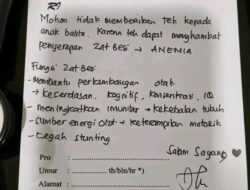 R/
Mohon tidak memberikan teh kepada
anak balita. Karena teh dapat menghambat
penyerapan Zat Besi → ANEMIA
Fungsi Zat Besi
- Membantu perkembangan otak
→ Kecerdasan, Kognitif, Konsentrasi, IQ
- meningkatkan imunitas → kekebalan tubuh
- Sumber energi otot → keterampilan motorik
- Cegah stunting
Salam Sayang
Pro :
Umur : th/bln/hr *)
Alamat :